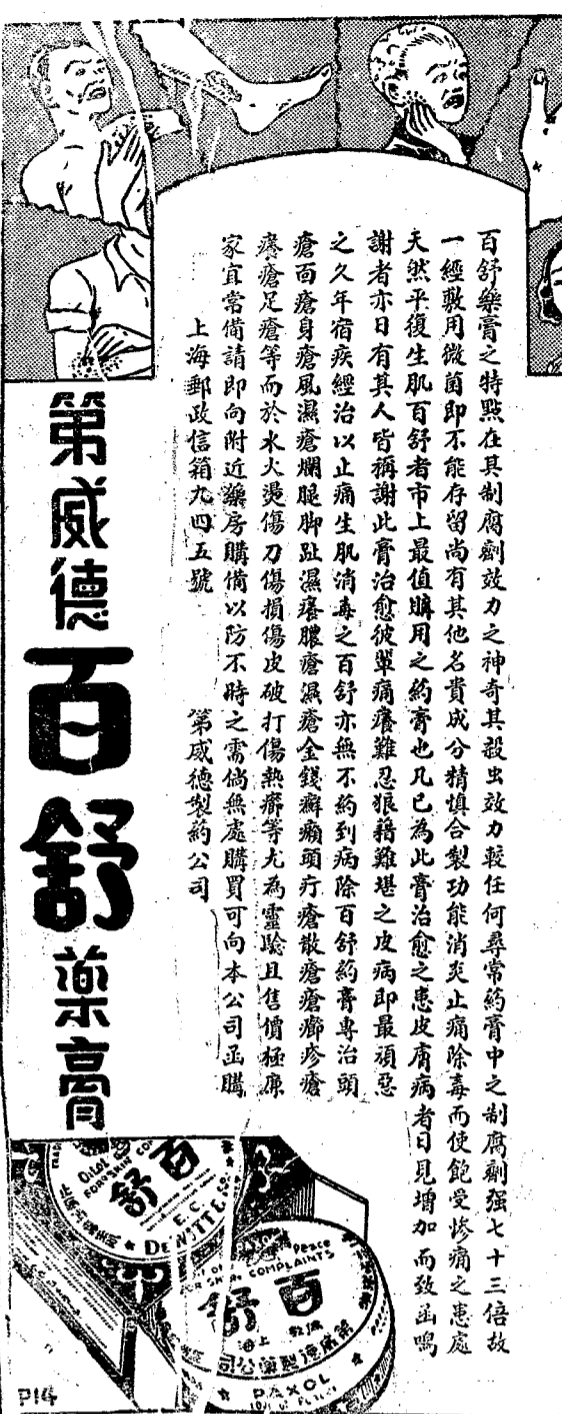 百舒藥膏之特點在其制腐劑效力之神奇其殺虫效力較任何尋常葯膏中之制腐劑强七十三倍故
一經敷用微菌即不能存留尚有其他名貴成分精慎合製功能消炎止痛除毒而使飽受慘痛之患處
天然平復生肌百舒者市上最值購用之葯膏也凡已為此膏治愈之患皮膚病者日見增加而致函鳴
謝者亦日有其人皆稱謝此膏治愈彼輩痛癢難忍狼藉難堪之皮病即最頑惡
之久年宿疾經治以止痛生肌消毒之百舒亦無不葯到病除百舒葯膏專治頭
瘡面瘡身瘡風濕瘡爛腿脚趾濕癢膿瘡濕瘡金錢癬癩頭疔瘡散瘡瘡癤疹瘡
瘡足瘡等而於水火燙傷刀傷損傷皮破打傷熱癤等尤為靈驗且售價極廉
家宜常備請即向附近藥房購備以防不時之需倘無處購買可向本公司函購
上海郵政信箱九四五號 第威德製葯公司
第威德
百舒
藥膏
百舒
E.C.
DEWITT & CO.
Peace
FOR SKIN COMPLAINTS
百舒
上海
第威德製藥公司
PAXOL
P14